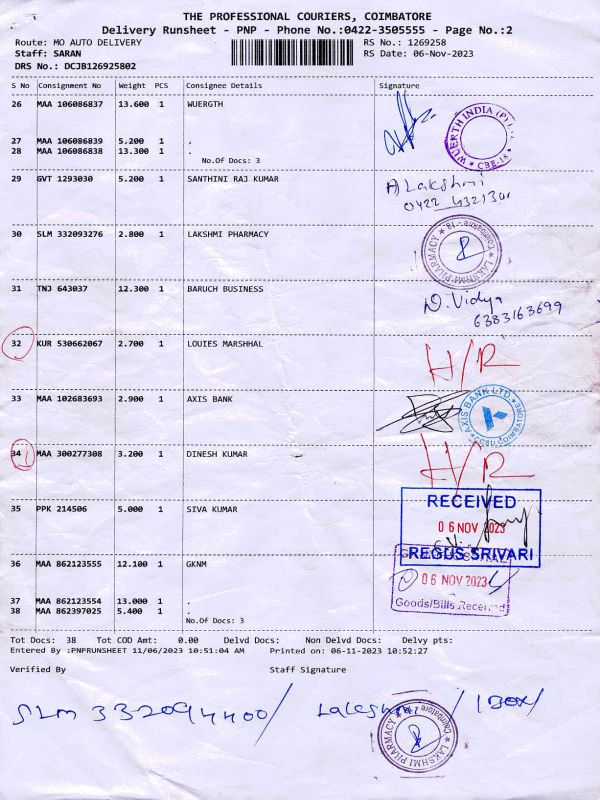 THE PROFESSIONAL COURIERS, COIMBATORE
Delivery Runsheet - PNP - Phone No.:0422-3505555 - Page No.:2
Route: MO AUTO DELIVERY RS No.: 1269258
Staff: SARAN RS Date: 06-Nov-2023
DRS No.: DCJB126925802
S No Consignment No Weight PCS Consignee Details Signature
26 MAA 106086837 13.600 1 WUERGTH
WUERTH INDIA
CBE-18
27 MAA 106086839 5.200 1 .
28 MAA 106086838 13.300 1 .
No.Of Docs: 3
29 GVT 1293030 5.200 1 SANTHINI RAJ KUMAR
A Lakshmi
0422
30 SLM 332093276 2.800 1 LAKSHMI PHARMACY
LAKSHMI PHARMACY Coimbatore - 18
31 TNJ 643037 12.300 1 BARUCH BUSINESS
D. Vidya
6383163699
32 KUR 530662067 2.700 1 LOUIES MARSHHAL
H/R
33 MAA 102683693 2.900 1 AXIS BANK
AXIS BANK LTD. COIMBATORE
34 MAA 300277308 3.200 1 DINESH KUMAR
H/R
35 PPK 214506 5.000 1 SIVA KUMAR
RECEIVED
06 NOV 2023
REGUS SRIVARI
36 MAA 862123555 12.100 1 GKNM
06 NOV 2023
Goods/Bills Received
37 MAA 862123554 13.000 1 .
38 MAA 862397025 5.400 1 .
No.Of Docs: 3
Tot Docs: 38 Tot COD Amt: 0.00 Delvd Docs: Non Delvd Docs: Delvy pts:
Entered By :PNPRUNSHEET 11/06/2023 10:51:04 AM Printed on: 06-11-2023 10:52:27
Verified By Staff Signature
SLM 332094400/ Lakshmi / 1 BOX/
LAKSHMI PHARMACY Coimbatore - 18